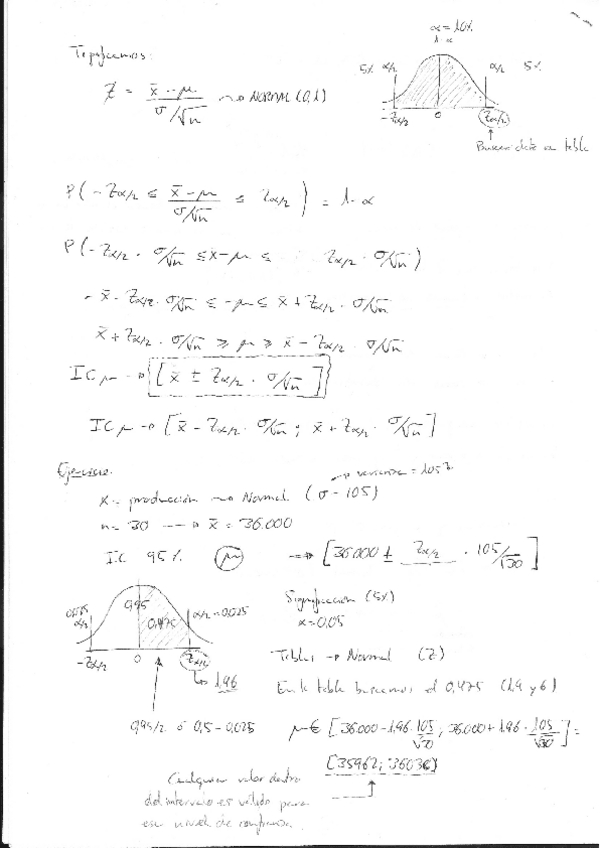 α = 10%
1-α
Tipificamos:
5% α/2 α/2 5%
Z = x̄ - μ / σ/√n ~> NORMAL (0,1)
-Zα/2 0 Zα/2
Buscar este en tabla
P(-Zα/2 ≤ x̄-μ / σ/√n ≤ Zα/2) = 1-α
P(-Zα/2 · σ/√n ≤ x̄-μ ≤ Zα/2 · σ/√n)
- x̄ - Zα/2 · σ/√n ≤ -μ ≤ x̄ + Zα/2 · σ/√n
x̄ + Zα/2 · σ/√n ≥ μ ≥ x̄ - Zα/2 · σ/√n
ICμ → [x̄ ± Zα/2 · σ/√n]
ICμ → [x̄ - Zα/2 · σ/√n ; x̄ + Zα/2 · σ/√n]
Ejercicio.
→ varianza = 105²
X = producción ~> Normal (σ = 105)
n = 30 → x̄ = 36.000
IC 95% μ → [36.000 ± Zα/2 · 105/√30]
0,025 α/2 0,95 0,475 α/2 = 0,025
-Zα/2 0 Zα/2
→ 1,96
Significación (5%)
α = 0,05
Tablas → Normal (Z)
En la tabla buscamos el 0,475 (1,9 y 6)
0,95/2 ó 0,5 - 0,025
μ ∈ [36.000 - 1,96 · 105/√30 ; 36.000 + 1,96 · 105/√30] =
Cualquier valor dentro
del intervalo es válido para
ese nivel de confianza.